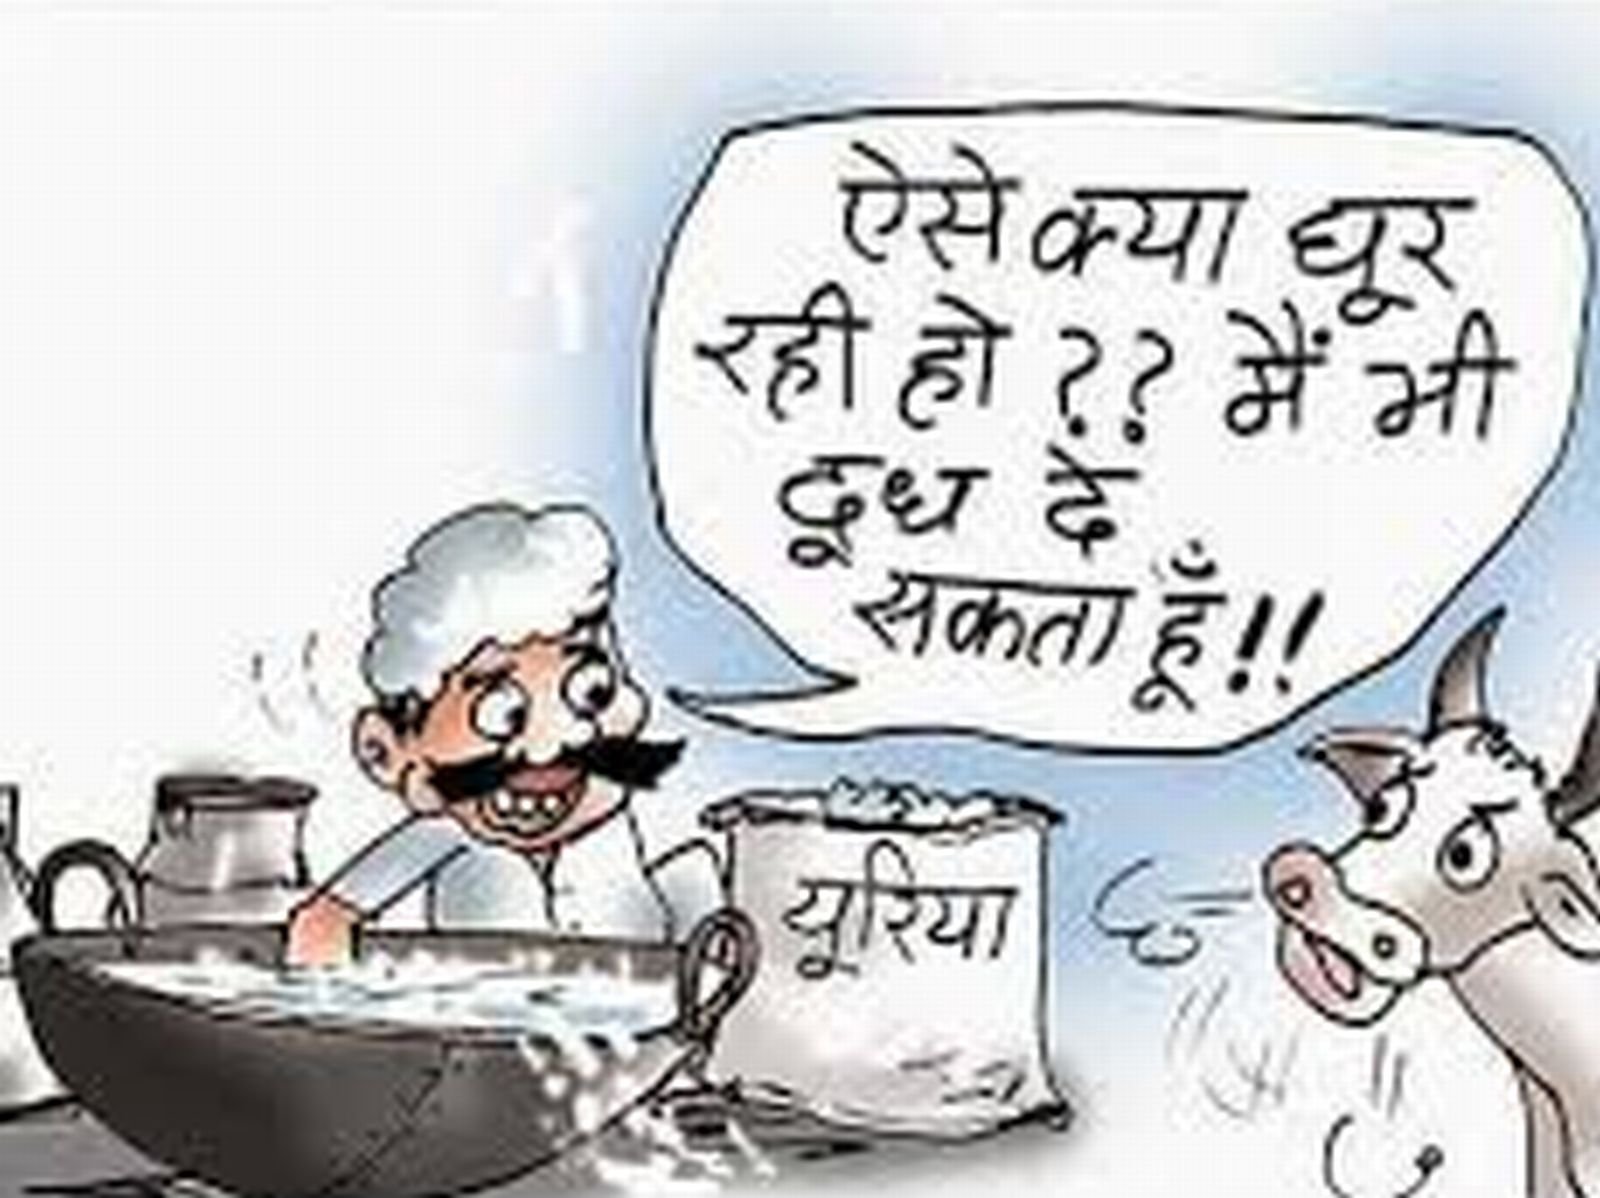 ऐसे क्या घूर
रही हो ?? मैं भी
दूध दे
सकता हूँ!!
यूरिया